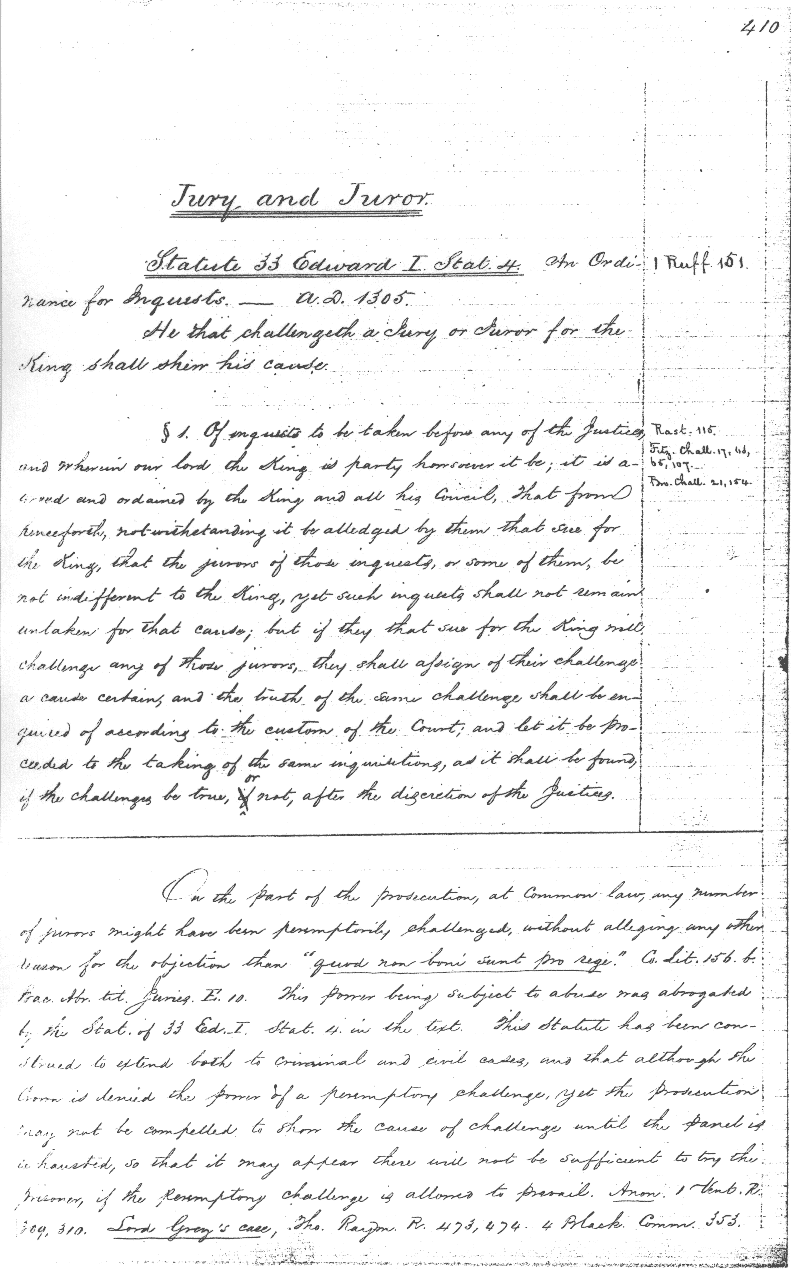 410
Jury and Juror.
Statute 33 Edward I. Stat. 4. An Ordi-
1 Ruff. 151.
nance for Inquests. — A.D. 1305.
He that challengeth a Jury or Juror for the
King shall shew his cause.
§ 1. Of inquests to be taken before any of the Justices,
Rast. 115.
and wherein our lord the King is party howsoever it be; it is a-
Fitz. Chall. 17,
greed and ordained by the King and all his Council, That from
107.
henceforth, notwithstanding it be alledged by them that sue for
Bro. Chall. 21, 154.
the King, that the jurors of those inquests, or some of them, be
not indifferent to the King, yet such inquests shall not remain
untaken for that cause; but if they that sue for the King will
challenge any of those jurors, they shall assign of their challenge
a cause certain, and the truth of the same challenge shall be en-
quired of according to the custom of the Court; and let it be pro-
ceeded to the taking of the same inquisitions, as it shall be found,
if the challenges be true, or not, after the discretion of the Justices.
On the part of the prosecution, at Common law, any number
of jurors might have been peremptorily challenged, without alleging any other
reason for the objection than "quod non boni sunt pro rege." Co. Lit. 156. b.
Bac. Abr. tit. Juries. E. 10. This power being subject to abuse was abrogated
by the Stat. of 33 Ed. I. Stat. 4. in the text. This Statute has been con-
strued to extend both to criminal and civil cases, and that although the
Crown is denied the power of a peremptory challenge, yet the prosecution
may not be compelled to show the cause of challenge until the panel is
exhausted, so that it may appear there will not be sufficient to try the
prisoner, if the peremptory challenge is allowed to prevail. Anon. 1 Vent. R.
309, 310. Lord Grey's case, Tho. Raym. R. 473, 474. 4 Black. Comm. 353.